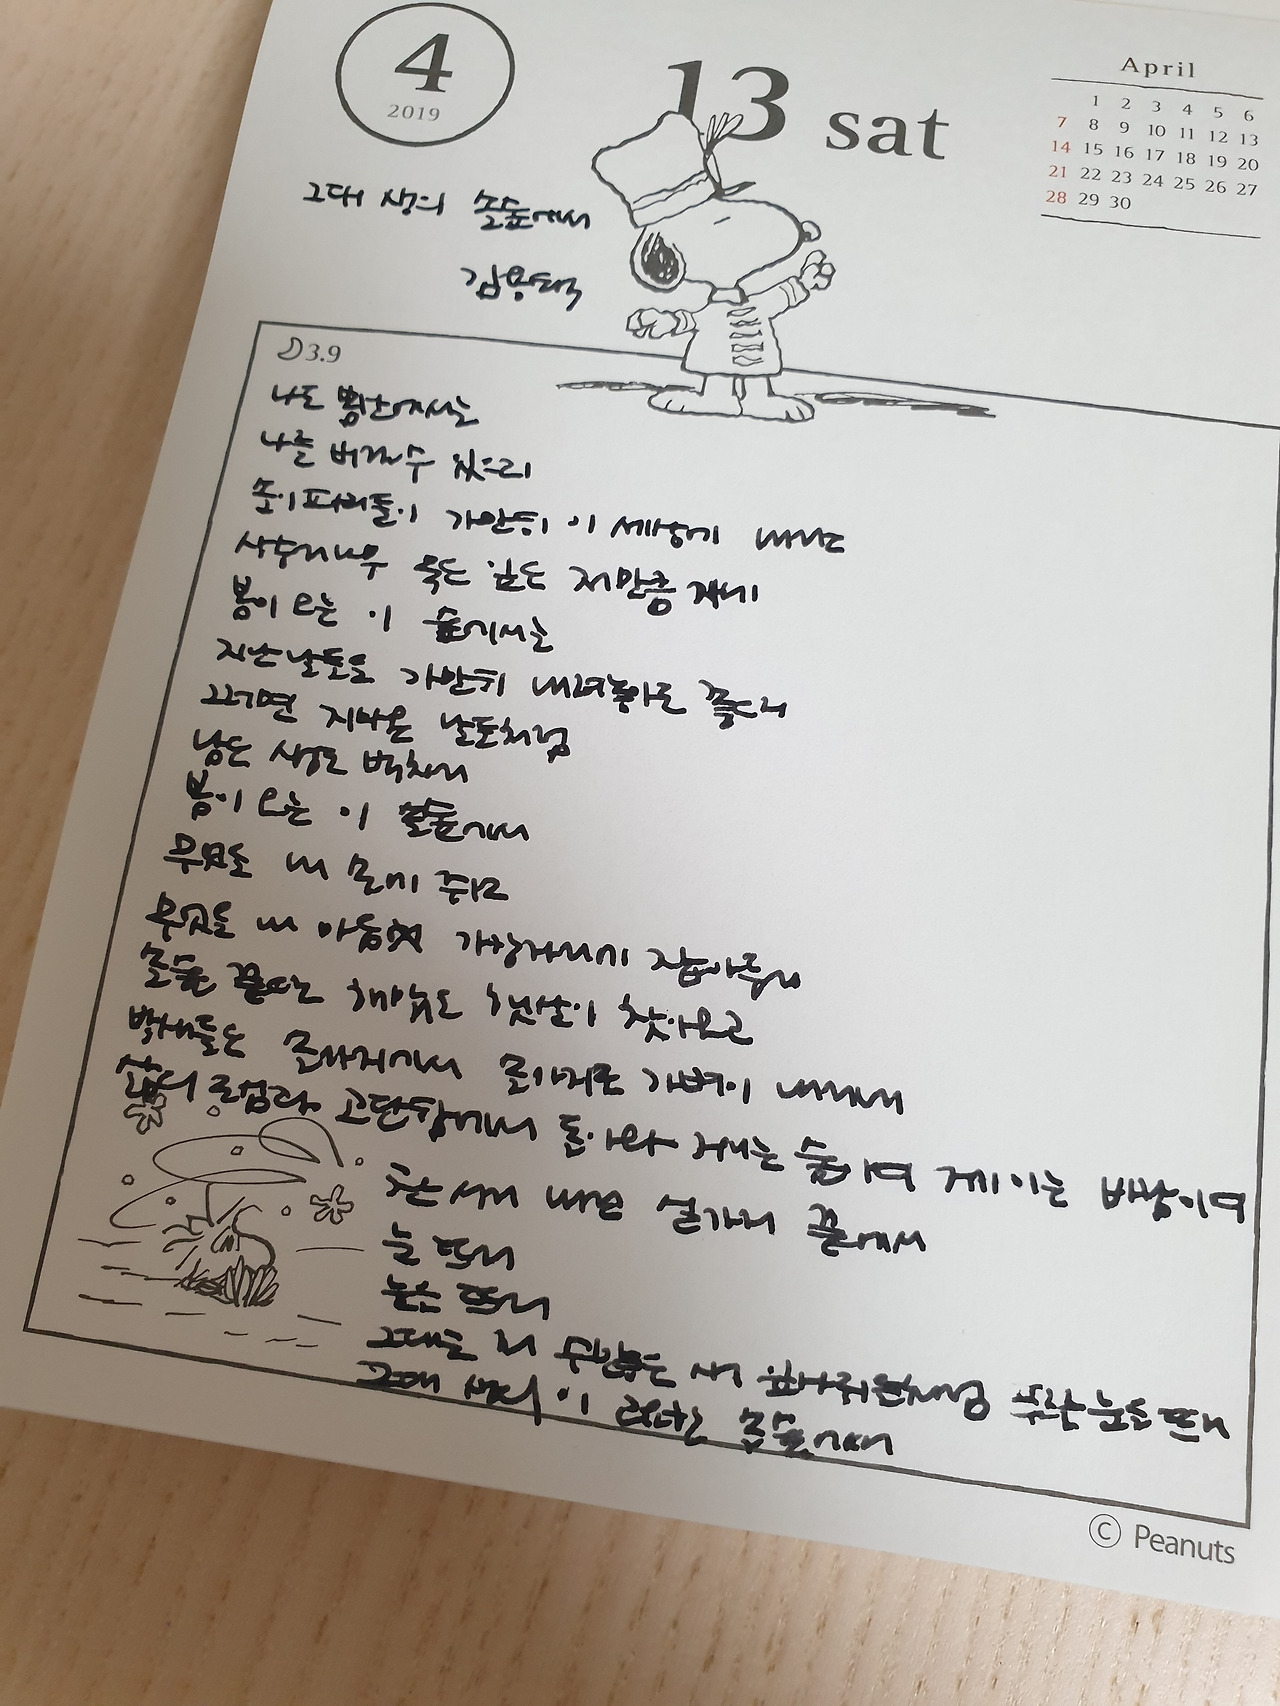 4
2019
13 sat
April
1 2 3 4 5 6
7 8 9 10 11 12 13
14 15 16 17 18 19 20
21 22 23 24 25 26 27
28 29 30
그대 생의 솔숲에서
김용택
3.9
나도 봄산에서는
나를 버릴 수 있으리
솔이파리들이 가만히 이 세상에 내리고
상수리나무 묵은 잎은 저만큼 지네
봄이 오는 이 숲에서는
지난날들을 가만히 내려놓아도 좋으리
그러면 지나온 날들처럼
남은 생도 벅차리
봄이 오는 이 솔숲에서
무엇을 내 손에 쥐고
무엇을 내 마음 가장자리에 잡아두리
솔숲 끝으로 해맑은 햇살이 찾아오고
박새들은 솔가지에서 솔가지로 가벼이 내리네
삶의 근심과 고단함에서 돌아와 거니는 숲이여 거기 이는 바람이여
찬 서리 내린 실가지 끝에서
눈 뜨리
눈을 뜨리
그대는 저 수많은 새 잎사귀들처럼 푸른 눈을 뜨리
그대 생의 이 고요한 솔숲에서
© Peanuts